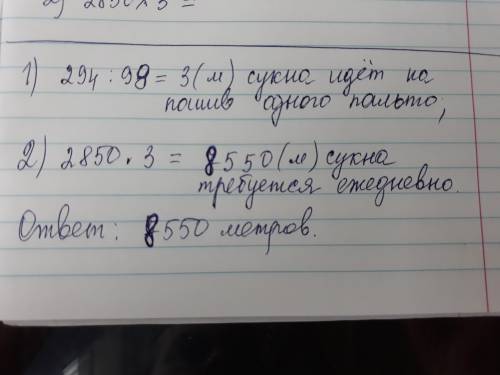 2) 2850 × 3 =
1) 294 : 98 = 3 (м) сукна идёт на
пошив одного пальто;
2) 2850 · 3 = 8550 (м) сукна
требуется ежедневно.
Ответ: 8550 метров.